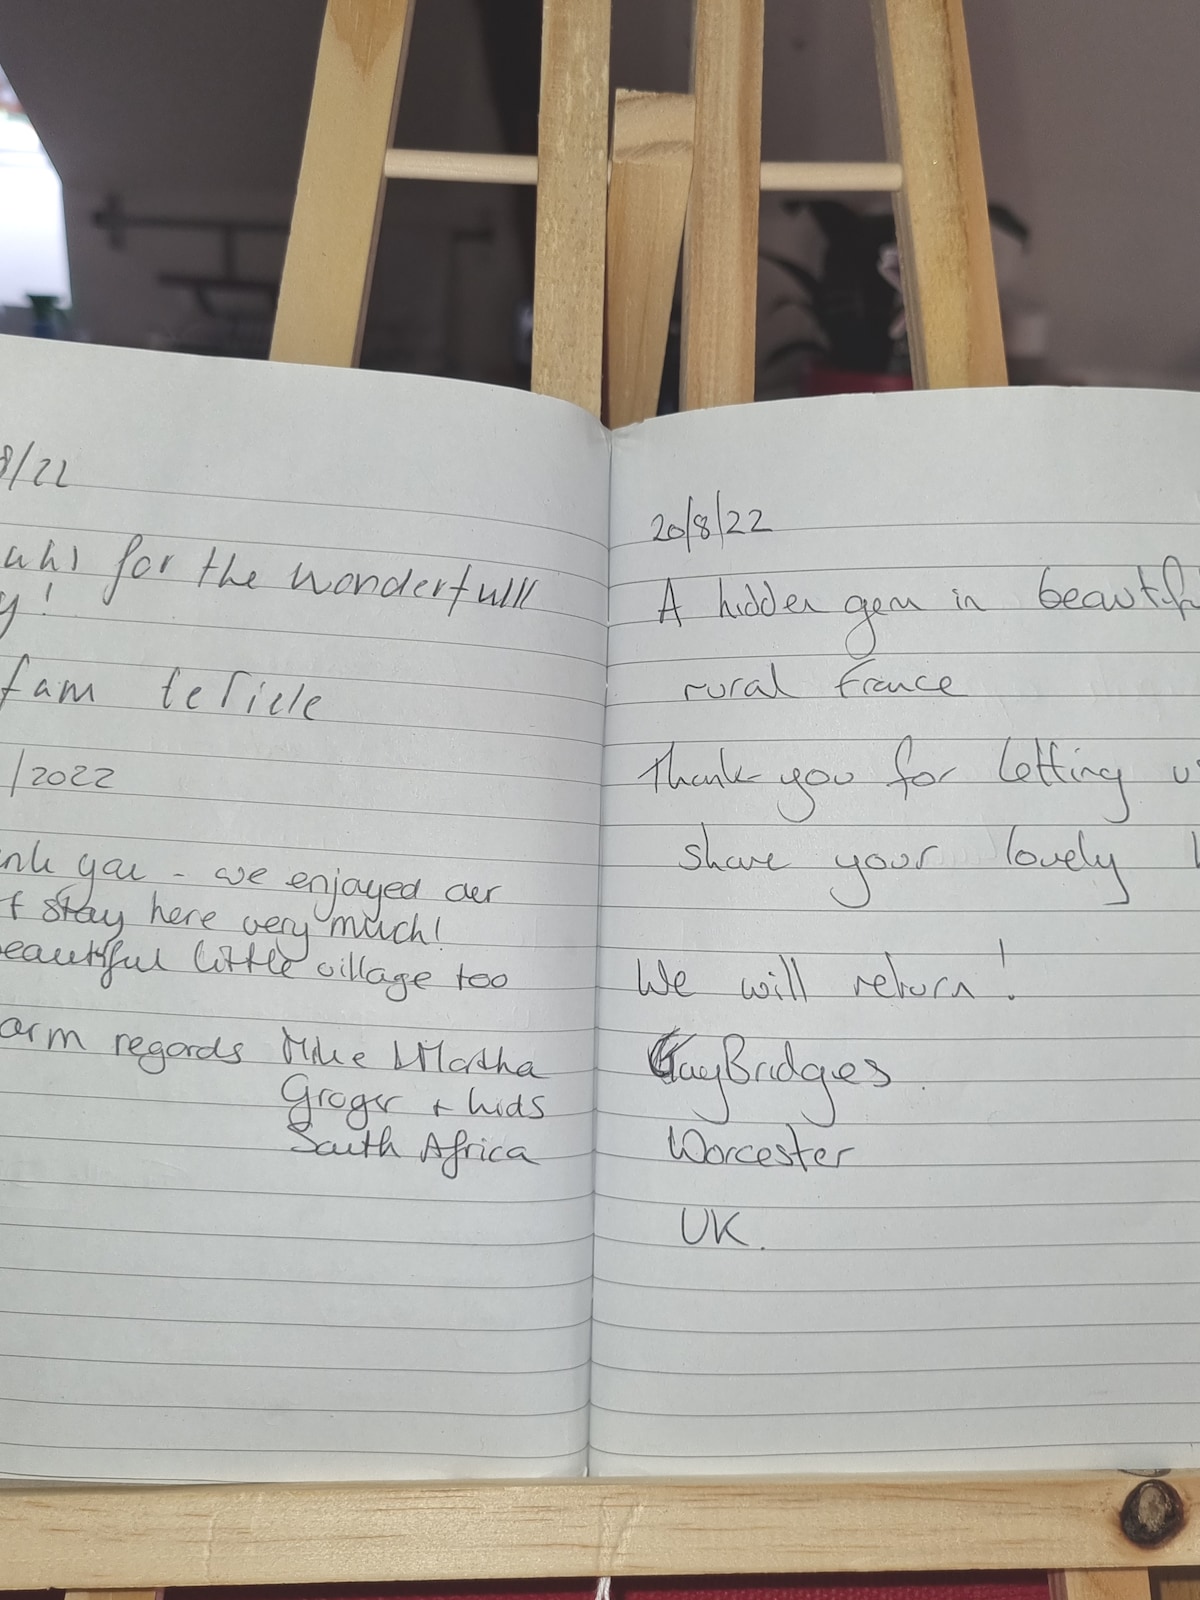 8/22
for the wonderfulll
y!
fam
/2022
you - we enjoyed our
stay here very much!
beautiful little village too
warm regards Mike & Martha
+ kids
South Africa
20/8/22
A hidden gem in beautiful
rural France
Thank you for letting us
share your lovely
We will return!
Bridges.
Worcester
UK.